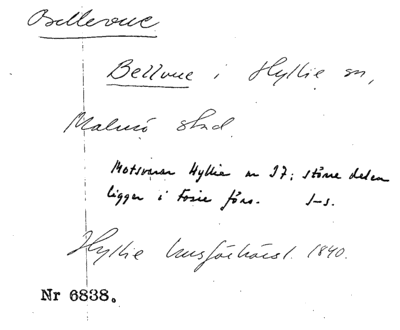 Bellevue
Bellvue i Hyllie sn,
Malmö stad.
Motsvarar Hyllie nr 27; större delen
ligger i Fosie förs. I-s.
Hyllie husförhörsl. 1840.
Nr 6838.